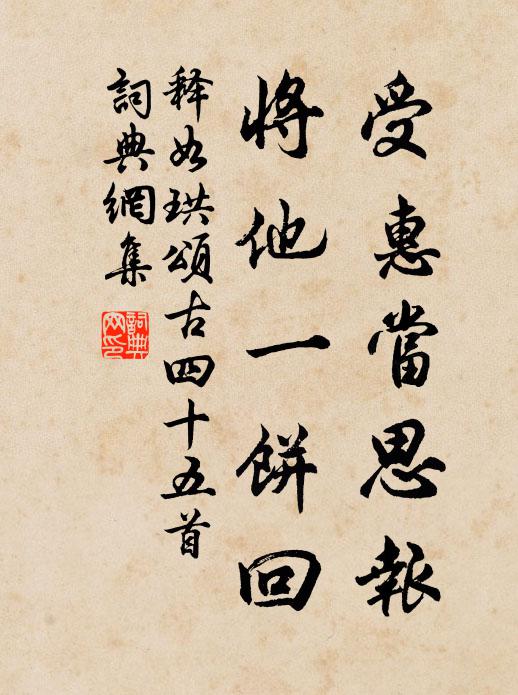 受惠當思報
將他一餅回
释如珙頌古四十五首
詞典網集
詞典網印